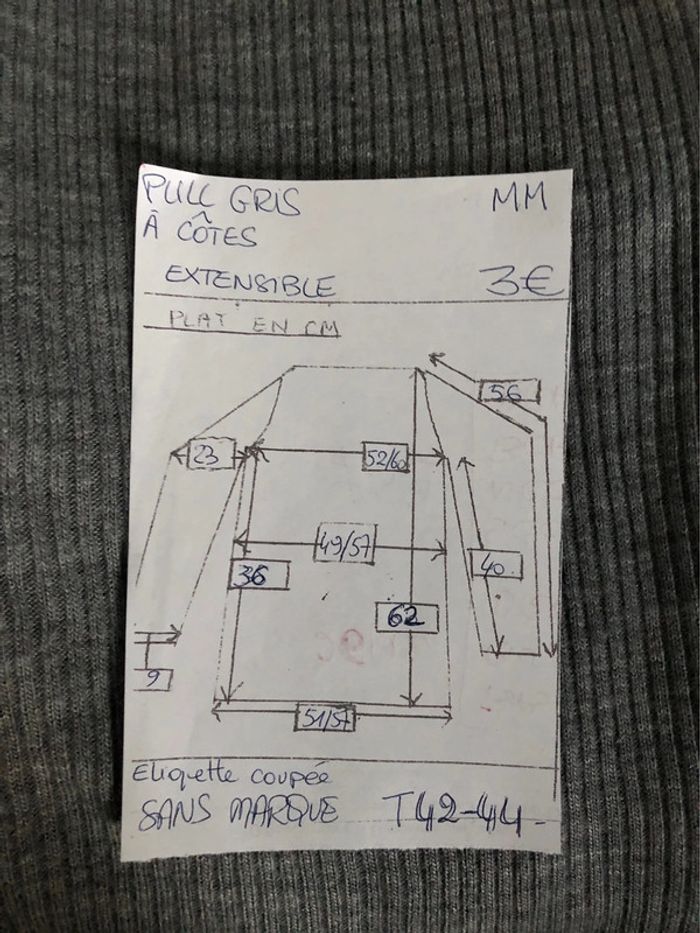 PULL GRIS MM
À CÔTES
EXTENSIBLE 3€
PLAT EN CM
56
23 52/60
49/57
36 40
62
9
51/57
Etiquette coupée
SANS MARQUE T42-44